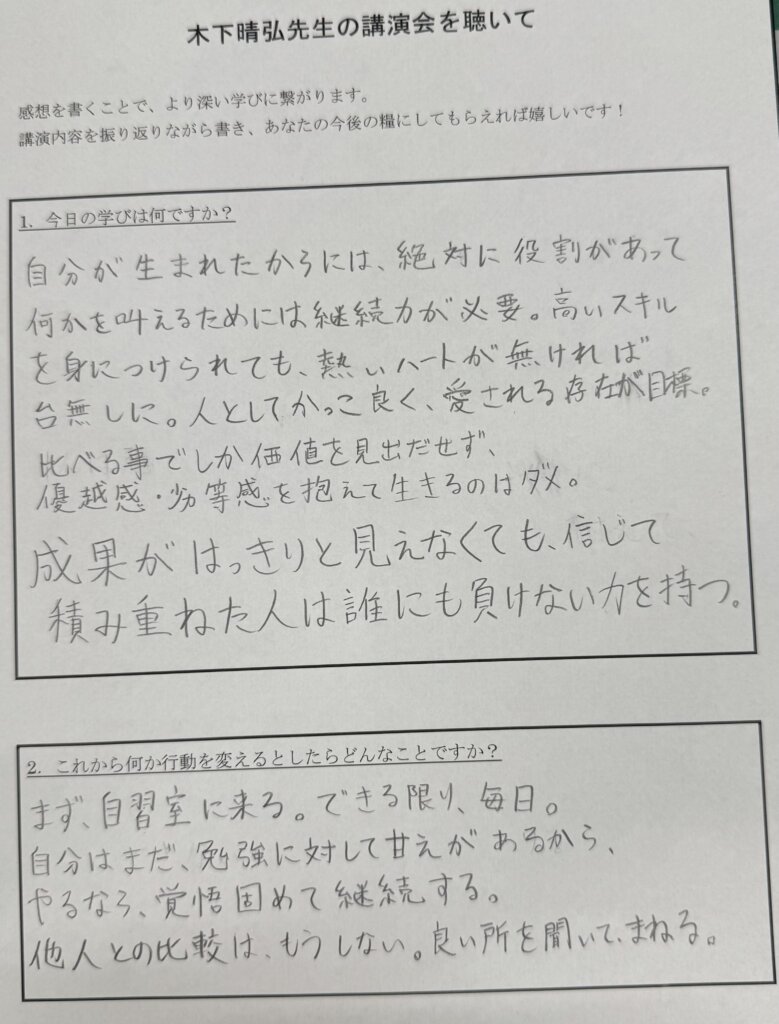 木下晴弘先生の講演会を聴いて
感想を書くことで、より深い学びに繋がります。
講演内容を振り返りながら書き、あなたの今後の糧にしてもらえれば嬉しいです！
1. 今日の学びは何ですか？
自分が生まれたからには、絶対に役割があって
何かを叶えるためには継続力が必要。高いスキル
を身につけられても、熱いハートが無ければ
台無しに。人としてかっこ良く、愛される存在が目標。
比べる事でしか価値を見出だせず、
優越感・劣等感を抱えて生きるのはダメ。
成果がはっきりと見えなくても、信じて
積み重ねた人は誰にも負けない力を持つ。
2. これから何か行動を変えるとしたらどんなことですか？
まず、自習室に来る。できる限り、毎日。
自分はまだ、勉強に対して甘えがあるから、
やるなら、覚悟固めて継続する。
他人との比較は、もうしない。良い所を聞いて、まねる。